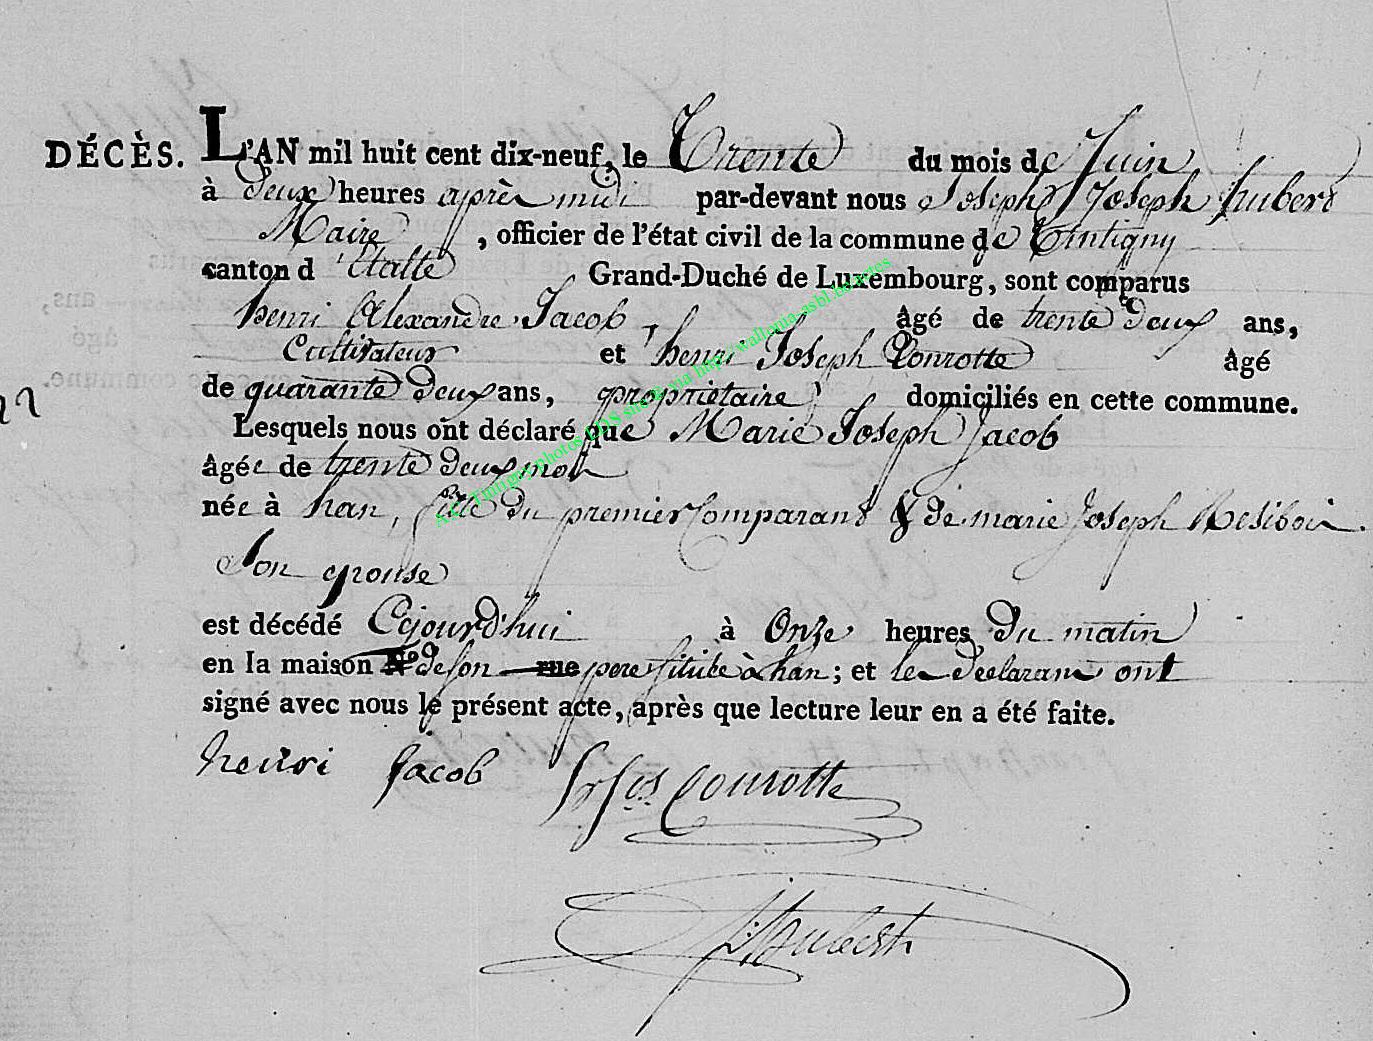 DÉCÈS. L'AN mil huit cent dix-neuf, le Trente du mois de Juin
à deux heures après midi par-devant nous Joseph Joseph hubert
Maire, officier de l'état civil de la commune de Tintigny
canton d'Etalle Grand-Duché de Luxembourg, sont comparus
henri Alexandre Jacob, âgé de trente deux ans,
Cultivateur et henri Joseph Conrotte âgé
de quarante deux ans, propriétaire domiciliés en cette commune.
22
Lesquels nous ont déclaré que Marie Joseph Jacob
âgée de trente deux mois
née à han, fille du premier Comparant & de marie Joseph Resibois
Son epouse
est décédé Cejourd'hui à Onze heures du matin
en la maison N.º de son rue pere située à han; et les declarans ont
signé avec nous le présent acte, après que lecture leur en a été faite.
henri Jacob Conrotte
Hubert
A.C. Tintigny photos CDS share via http://wallonia-asbl.be/actes